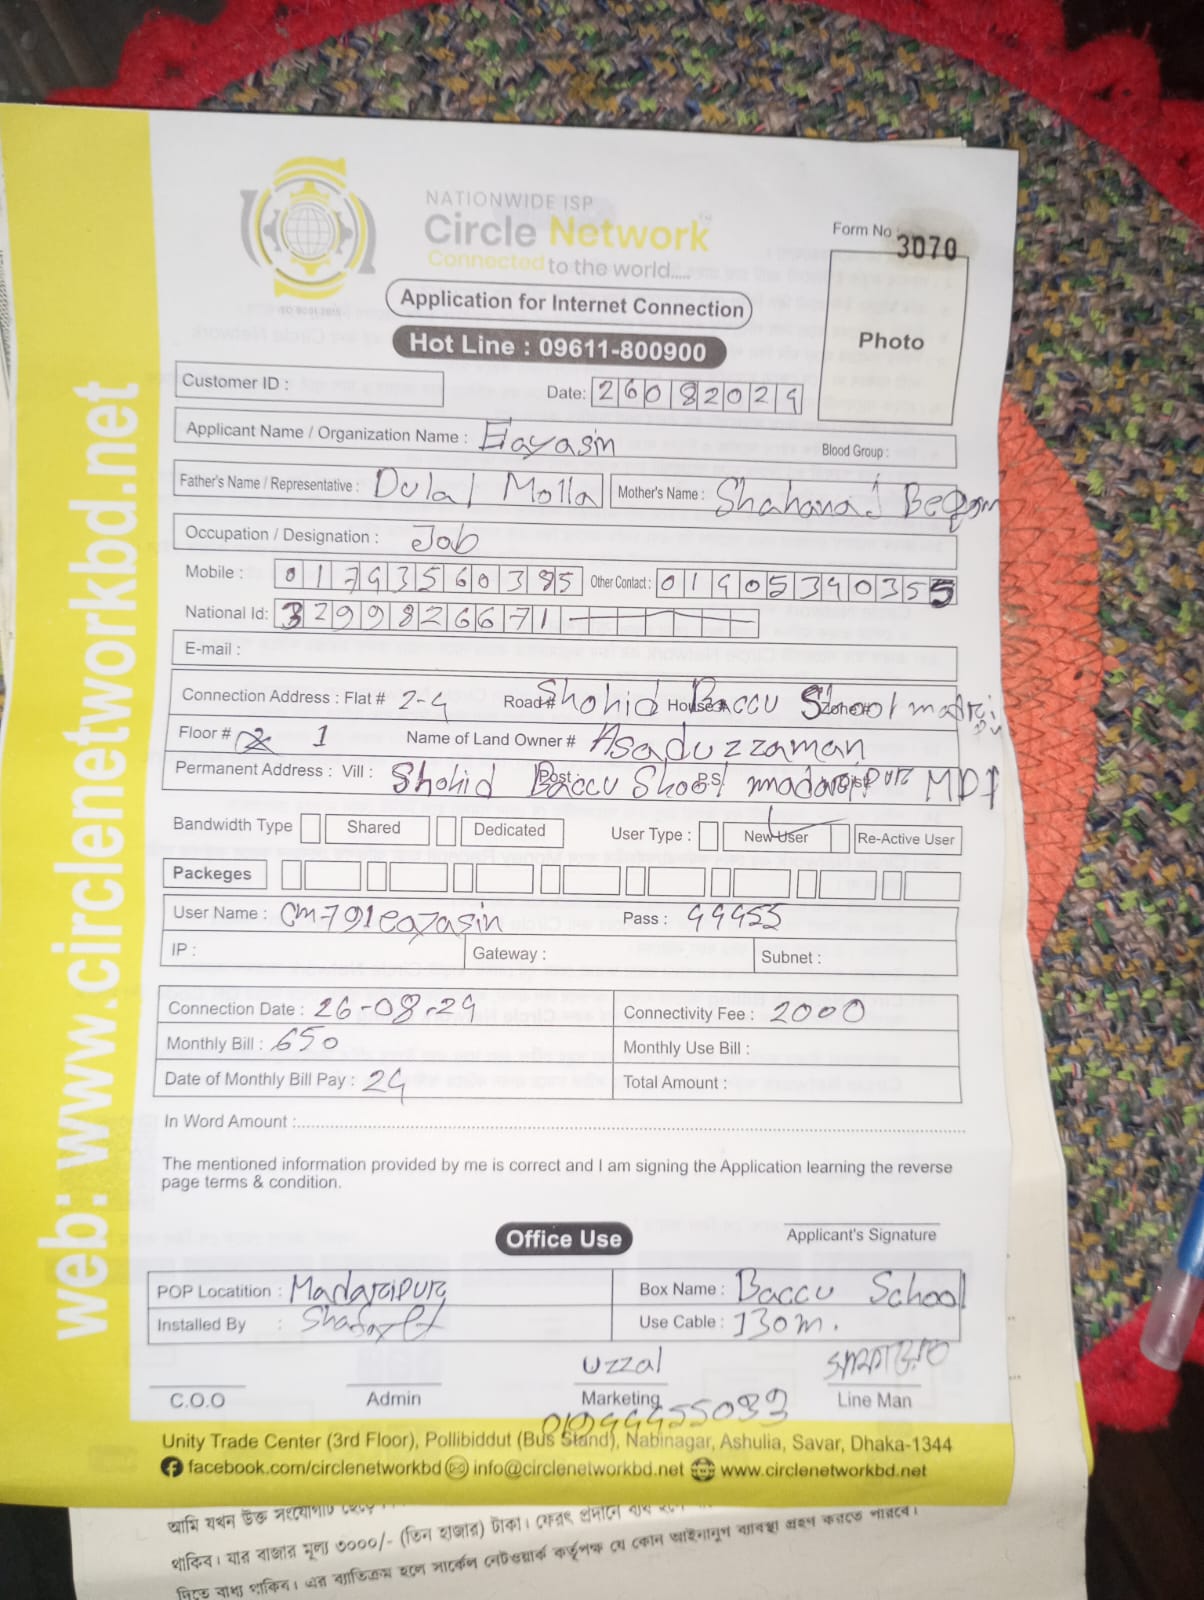 web: www.circlenetworkbd.net
NATIONWIDE ISP
Circle Network
Connected to the world.....
ISO 9001:2015
Form No :
3070
Application for Internet Connection
Hot Line : 09611-800900
Photo
Customer ID :
Date: 26082024
Applicant Name / Organization Name : Eiayasin Blood Group :
Father's Name / Representative : Dulal Molla Mother's Name : Shahanaj Begom
Occupation / Designation : Job
Mobile : 01793560385 Other Contact : 01905390355
National Id: 3299826671
E-mail :
Connection Address : Flat # 2-4 Road# House# Zone# Shohid Baccu School
Floor # 1 Name of Land Owner # Asaduzzaman
Permanent Address : Vill : Post : P.S Shohid Baccu Shool madaripur MDP
Bandwidth Type Shared Dedicated User Type : New User Re-Active User
Packeges
User Name : cm791eayasin Pass : 44455
IP : Gateway : Subnet :
Connection Date : 26-08-24 Connectivity Fee : 2000
Monthly Bill : 650 Monthly Use Bill :
Date of Monthly Bill Pay : 24 Total Amount :
In Word Amount :
The mentioned information provided by me is correct and I am signing the Application learning the reverse
page terms & condition.
Applicant's Signature
Office Use
POP Locatition : Madaripur Box Name : Baccu School
Installed By : Use Cable : 130m.
Uzzal
C.O.O Admin Marketing Line Man
01944455033
Unity Trade Center (3rd Floor), Pollibiddut (Bus Stand), Nabinagar, Ashulia, Savar, Dhaka-1344
facebook.com/circlenetworkbd info@circlenetworkbd.net www.circlenetworkbd.net
আমি যখন উক্ত সংযোগটি
থাকিব। যার বাজার মূল্য ৩০০০/- (তিন হাজার) টাকা। ফেরৎ প্রদানে
দিতে বাধ্য থাকিব। এর ব্যতিক্রম হলে সার্কেল নেটওয়ার্ক কর্তৃপক্ষ যে কোন আইনানুগ ব্যবস্থা গ্রহণ করতে পারবে।